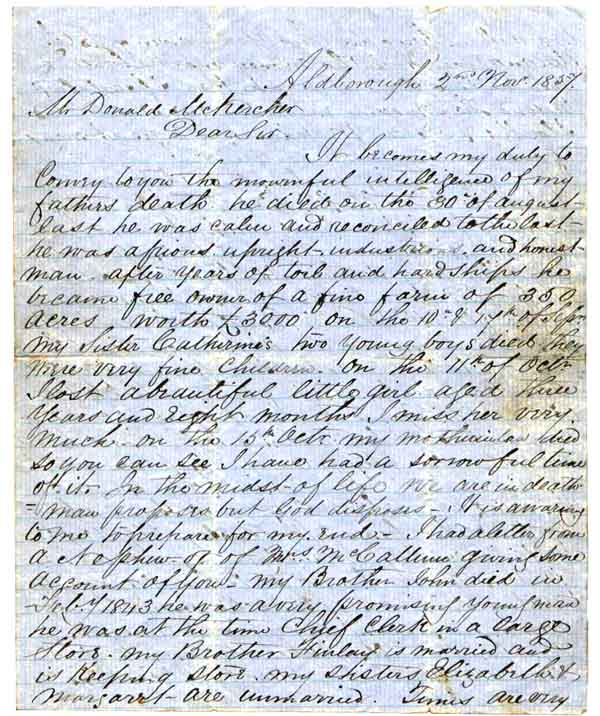 Aldborough 2nd Nov. 1857.
Mr Donald McKercher
Dear Sir.
It becomes my duty to
convey to you the mournful intelligence of my
fathers death he died on the 30th of august
last he was calm and reconciled to the last
he was apious upright industrious and honest
man. after years of toil and hardships he
became free owner of a fine farm of 350
acres worth £3000 on the 10th & of
my Sister Catherine's two young boys died they
were very fine children. on the 11th of Octr
I lost a beautiful little girl aged three
years and eight months I miss her very
much on the 15th Octr my motherinlaw died
so you can see I have had a sorrowful time
of it. In the midst of life we are in death
- man proposes but God disposes - It is a waring
to me to prepare for my end - I had a letter from
a Nephew of of Mrs McCallum giving some
account of you - my Brother John died in
Feby 1843 he was a very promising young man
he was at the time Chief Clerk in a large
Store. my Brother Finlay is married and
is Keeping store. my sisters Elizabeth &
Margaret are unmarried. Times are very